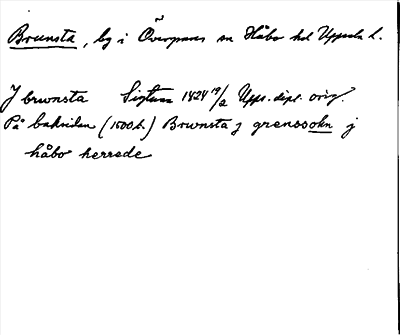 Brunsta, by i Övergrans sn Håbo hd Uppsala l.
J brwnsta Sigtuna 1424 19/2 Upps. dipl. orig.
På baksidan (1500t.) Brwnsta j grenssokn j
håbo herrede